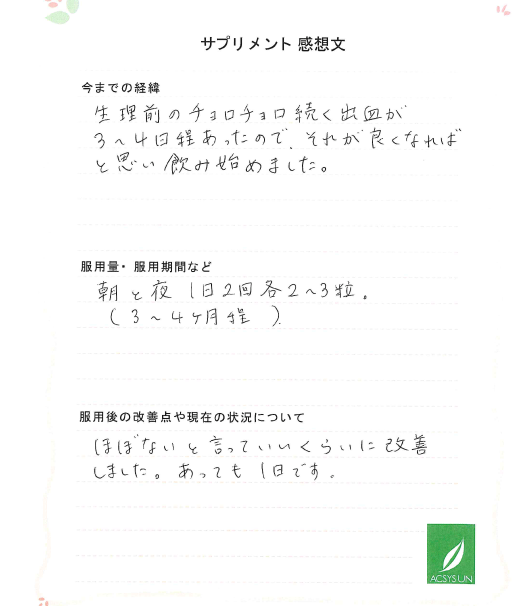 サプリメント 感想文
今までの経緯
生理前のチョロチョロ続く出血が
3〜4日程あったので、それが良くなれば
と思い飲み始めました。
服用量・服用期間など
朝と夜 1日2回各2〜3粒。
(3〜4ヶ月程 )
服用後の改善点や現在の状況について
ほぼないと言っていいくらいに改善
しました。あっても1日です。
ACSYSUN